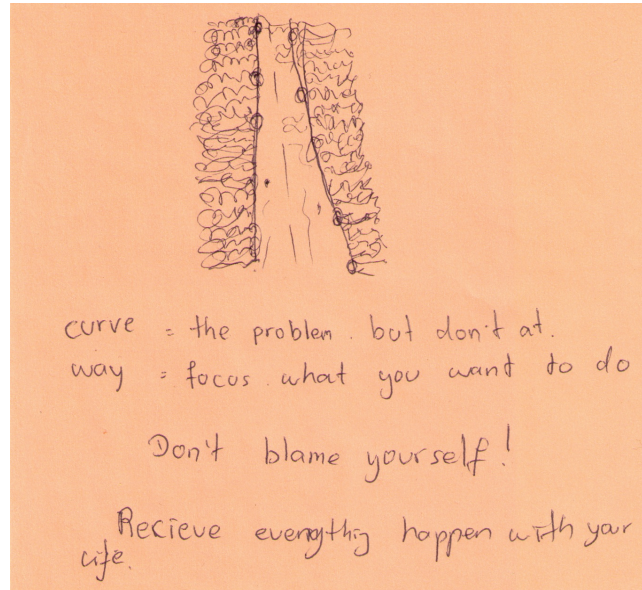 curve = the problem. but don't at.
way = focus. what you want to do
Don't blame yourself!
Recieve everythig happen with your
life.